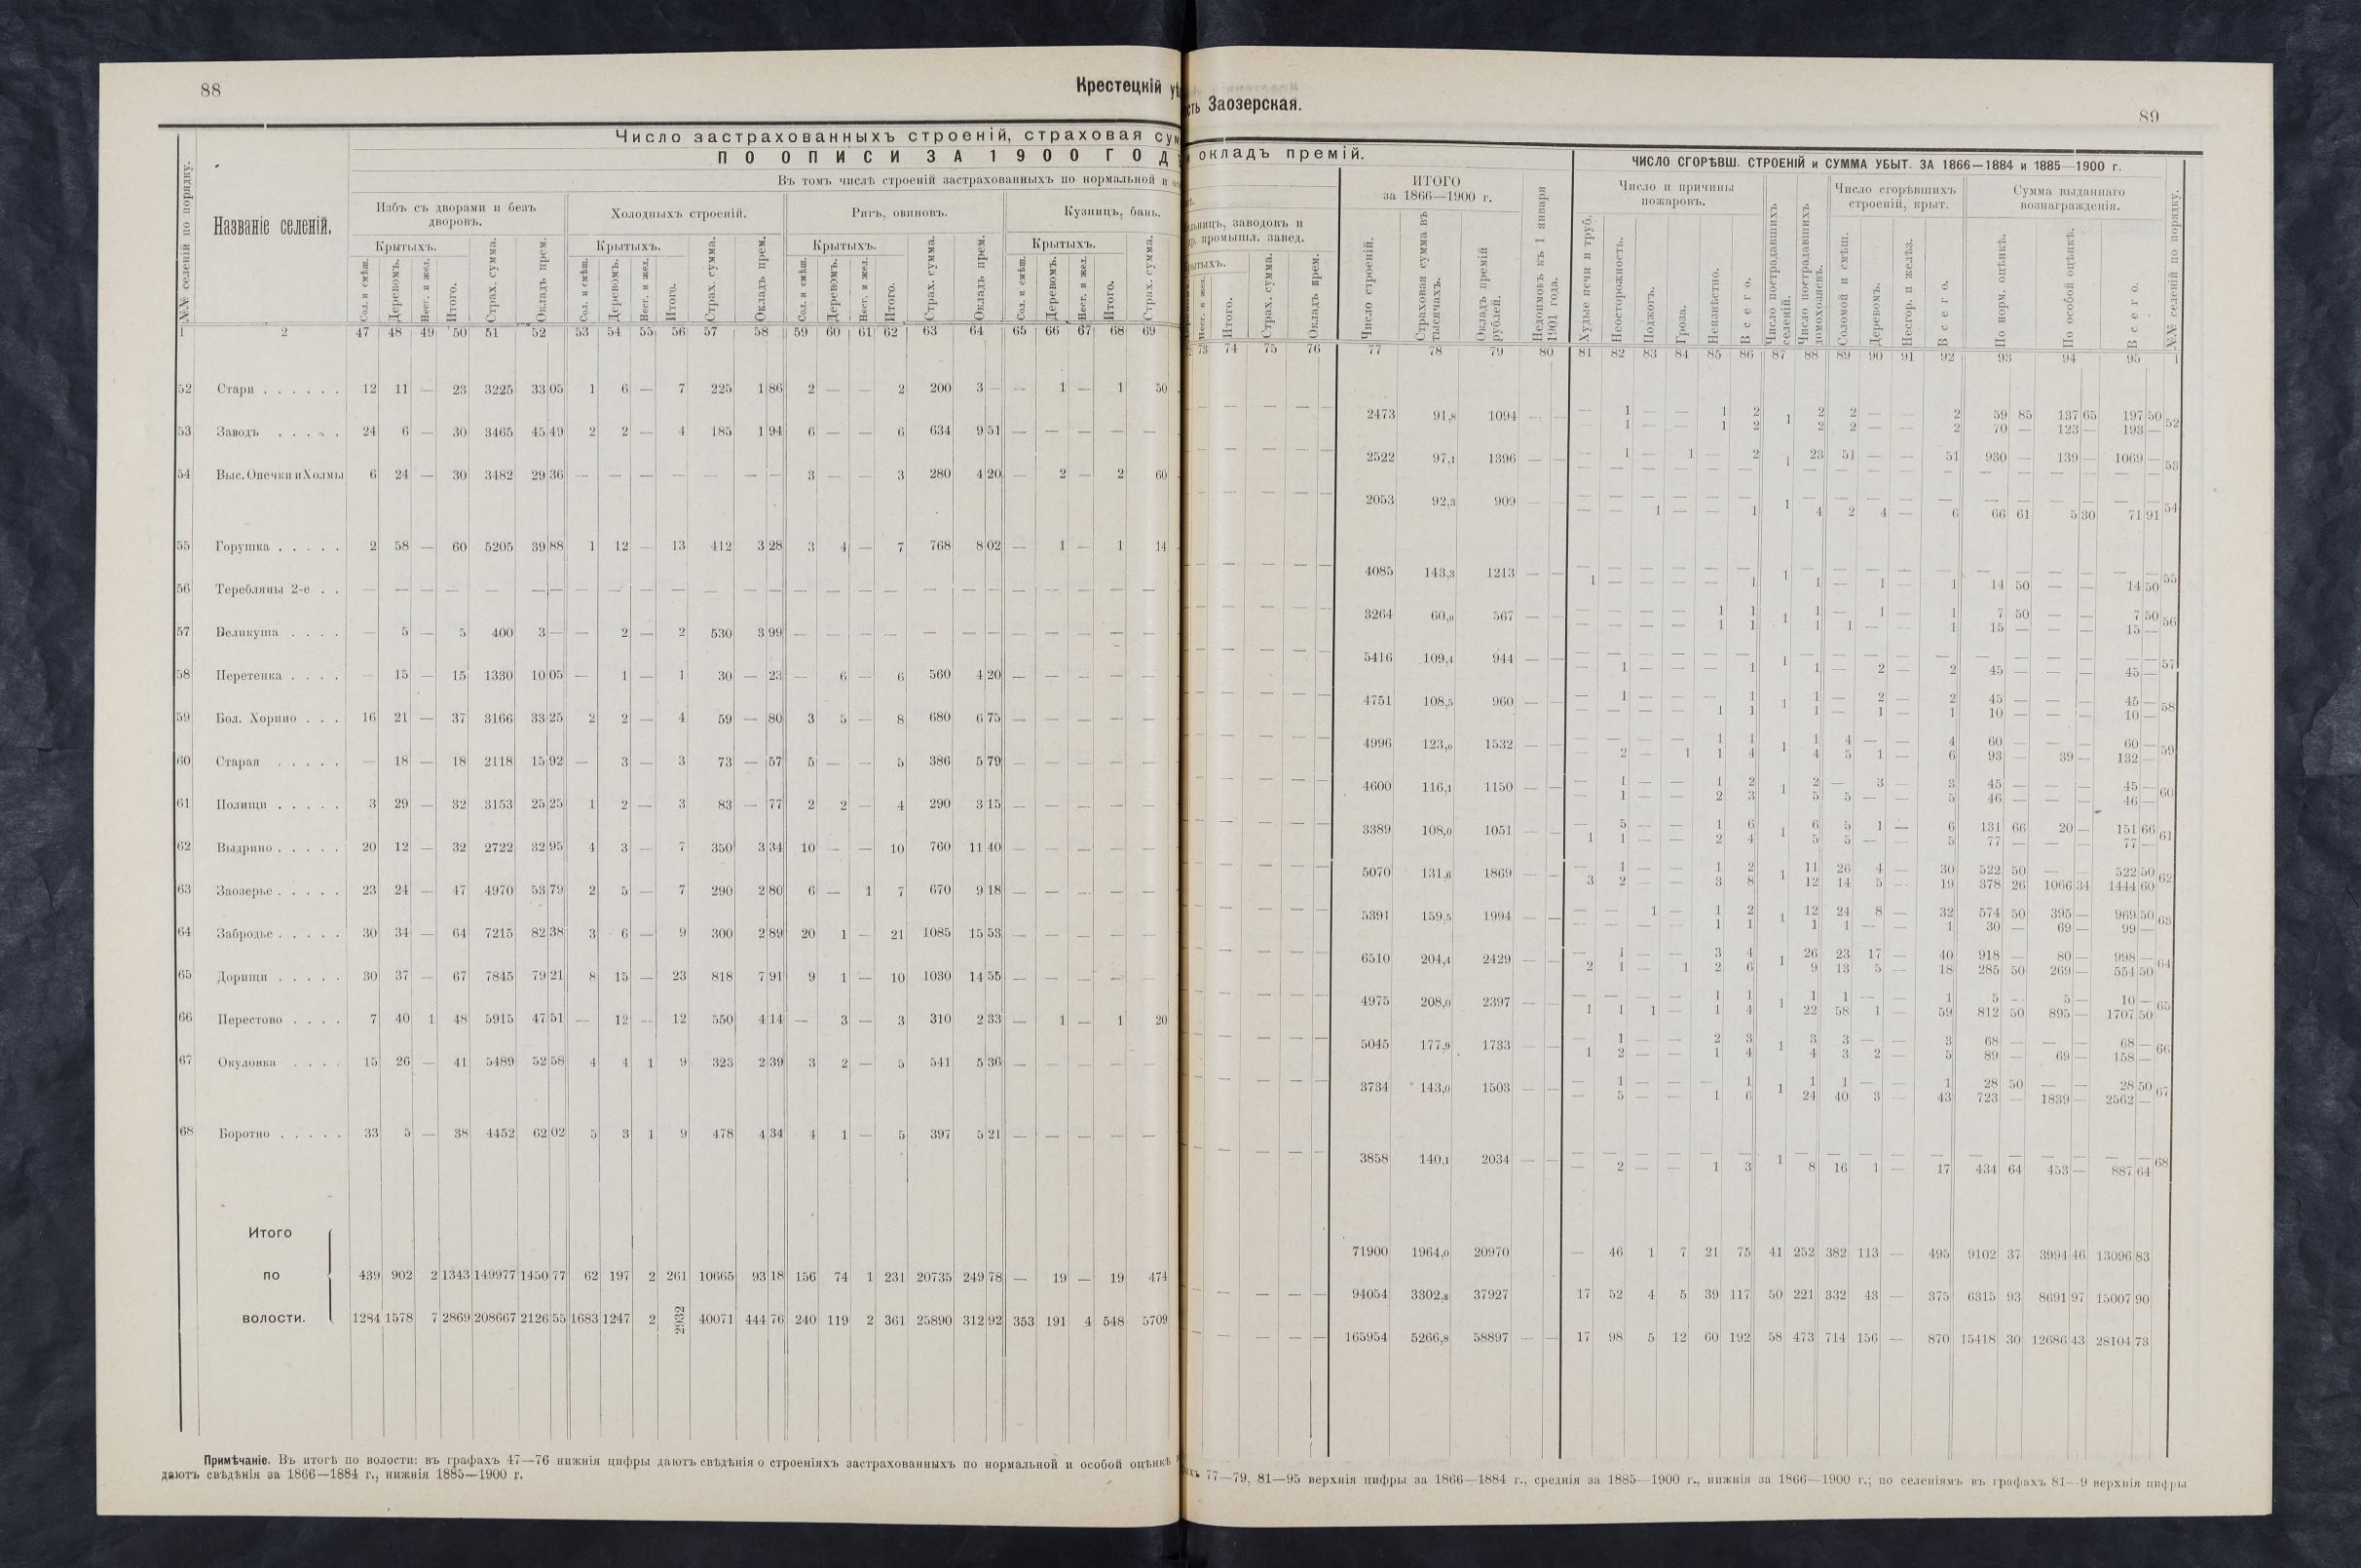 88
Крестецкій
Число застрахованныхъ строеній, страховая
ПО ОПИСИ ЗА 1900
Въ томъ числѣ строеній застрахованныхъ по нормальной и
№№ селеній по порядку.
Названіе селеній.
Избъ съ дворами и безъ дворовъ.
Холодныхъ строеній.
Ригъ, овиновъ.
Кузницъ, бань.
Крытыхъ. Крытыхъ. Крытыхъ. Крытыхъ.
Сол. и смѣш. Деревомъ. Несг. и жел. Итого. Страх. сумма. Окладъ прем. Сол. и смѣш. Деревомъ. Несг. и жел. Итого. Страх. сумма. Окладъ прем. Сол. и смѣш. Деревомъ. Несг. и жел. Итого. Страх. сумма. Окладъ прем. Сол. и смѣш. Деревомъ. Несг. и жел. Итого. Страх. сумма.
1 2 47 48 49 50 51 52 53 54 55 56 57 58 59 60 61 62 63 64 65 66 67 68 69
52 Стари . . . . . . 12 11 — 23 3225 33 05 1 6 — 7 225 1 86 2 — — 2 200 3 — — 1 — 1 50
53 Заводъ . . . . . 24 6 — 30 3465 45 49 2 2 — 4 185 1 94 6 — — 6 634 9 51 — — — — —
54 Выс. Опечки и Холмы 6 24 — 30 3482 29 36 — — — — — — — 3 — — 3 280 4 20 — 2 — 2 60
55 Горушка . . . . . 2 58 — 60 5205 39 88 1 12 — 13 412 3 28 3 4 — 7 768 8 02 — 1 — 1 14
56 Теребляны 2-е . . — — — — — — — — — — — — — — — — — — — — — — — — —
57 Великуша . . . . — 5 — 5 400 3 — — 2 — 2 530 3 99 — — — — — — — — — — — —
58 Перетенка . . . . — 15 — 15 1330 10 05 — 1 — 1 30 — 23 — 6 — 6 560 4 20 — — — — —
59 Бол. Хорино . . . 16 21 — 37 3166 33 25 2 2 — 4 59 — 80 3 5 — 8 680 6 75 — — — — —
60 Старая . . . . . — 18 — 18 2118 15 92 — 3 — 3 73 — 57 5 — — 5 386 5 79 — — — — —
61 Полищи . . . . . 3 29 — 32 3153 25 25 1 2 — 3 83 — 77 2 2 — 4 290 3 15 — — — — —
62 Выдрино . . . . . 20 12 — 32 2722 32 95 4 3 — 7 350 3 34 10 — — 10 760 11 40 — — — — —
63 Заозерье . . . . . 23 24 — 47 4970 53 79 2 5 — 7 290 2 80 6 — 1 7 670 9 18 — — — — —
64 Забродье . . . . . 30 34 — 64 7215 82 38 3 6 — 9 300 2 89 20 1 — 21 1085 15 53 — — — — —
65 Дорищи . . . . . 30 37 — 67 7845 79 21 8 15 — 23 818 7 91 9 1 — 10 1030 14 55 — — — — —
66 Перестово . . . . 7 40 1 48 5915 47 51 — 12 — 12 550 4 14 — 3 — 3 310 2 33 — 1 — 1 20
67 Окуловка . . . . 15 26 — 41 5489 52 58 4 4 1 9 323 2 39 3 2 — 5 541 5 36 — — — — —
68 Боротно . . . . . 33 5 — 38 4452 62 02 5 3 1 9 478 4 34 4 1 — 5 397 5 21 — — — — —
Итого
по 439 902 2 1343 149977 1450 77 62 197 2 261 10665 93 18 156 74 1 231 20735 249 78 — 19 — 19 474
волости. 1284 1578 7 2869 208667 2126 55 1683 1247 2 2932 40071 444 76 240 119 2 361 25890 312 92 353 191 4 548 5709
Примѣчаніе. Въ итогѣ по волости: въ графахъ 47—76 нижнія цифры даютъ свѣдѣнія о строеніяхъ застрахованныхъ по нормальной и особой оцѣнкѣ
даютъ свѣдѣнія за 1866—1884 г., нижнія 1885—1900 г.
Заозерская.
89
окладъ премій.
ЧИСЛО СГОРѢВШ. СТРОЕНІЙ и СУММА УБЫТ. ЗА 1866—1884 и 1885—1900 г.
заводовъ и
промышл. завед.
ИТОГО
за 1866—1900 г.
Недоимокъ къ 1 января 1901 года.
Число и причины пожаровъ.
Число пострадавшихъ селеній.
Число пострадавшихъ домохозяевъ.
Число сгорѣвшихъ строеній, крыт.
Сумма выданнаго вознагражденія.
№№ селеній по порядку.
Несг. и жел. Итого. Страх. сумма. Окладъ прем. Число строеній. Страховая сумма въ тысячахъ. Окладъ премій рублей.
Худыя печи и труб. Неосторожность. Поджогъ. Гроза. Неизвѣстно. Всего. Соломой и смѣш. Деревомъ. Несгор. и желѣз. Всего. По норм. оцѣнкѣ. По особой оцѣнкѣ. Всего.
73 74 75 76 77 78 79 80 81 82 83 84 85 86 87 88 89 90 91 92 93 94 95 1
— — — — 2473 91,8 1094 — — — 1 — — 1 2 1 2 2 — — 2 59 85 137 65 197 50 52
— 1 — — 1 2 2 2 — — 2 70 — 123 — 193 —
— — — — 2522 97,1 1396 — — — 1 — 1 — 2 1 23 51 — — 51 930 — 139 — 1069 — 53
— — — — — — — — — — — — — — — — —
— — — — 2053 92,3 909 — — — — — — — — 1 — — — — — — — — — — — 54
— — 1 — — 1 4 2 4 — 6 66 61 5 30 71 91
— — — — 4085 143,3 1213 — — — — — — — — 1 — — — — — — — — — — — 55
1 — — — — 1 1 — 1 — 1 14 50 — — 14 50
— — — — 3264 60,0 567 — — — — — — 1 1 1 1 — 1 — 1 7 50 — — 7 50 56
— — — — 1 1 1 1 — — 1 15 — — — 15 —
— — — — 5416 109,4 944 — — — — — — — — 1 — — — — — — — — — — — 57
— 1 — — — 1 1 — 2 — 2 45 — — — 45 —
— — — — 4751 108,5 960 — — — 1 — — — 1 1 1 — 2 — 2 45 — — — 45 — 58
— — — — 1 1 1 — 1 — 1 10 — — — 10 —
— — — — 4996 123,0 1532 — — — — — — 1 1 1 1 4 — — 4 60 — — — 60 — 59
— 2 — 1 1 4 4 5 1 — 6 93 — 39 — 132 —
— — — — 4600 116,1 1150 — — — 1 — — 1 2 1 2 — 3 — 3 45 — — — 45 — 60
— 1 — — 2 3 5 5 — — 5 46 — — — 46 —
— — — — 3389 108,0 1051 — — — 5 — — 1 6 1 6 5 1 — 6 131 66 20 — 151 66 61
1 1 — — 2 4 5 5 — — 5 77 — — — 77 —
— — — — 5070 131,6 1869 — — — 1 — — 1 2 1 11 26 4 — 30 522 50 — — 522 50 62
3 2 — — 3 8 12 14 5 — 19 378 26 1066 34 1444 60
— — — — 5391 159,5 1994 — — — — 1 — 1 2 1 12 24 8 — 32 574 50 395 — 969 50 63
— — — — 1 1 1 1 — — 1 30 — 69 — 99 —
— — — — 6510 204,4 2429 — — — 1 — — 3 4 1 26 23 17 — 40 918 — 80 — 998 — 64
2 1 — 1 2 6 9 13 5 — 18 285 50 269 — 554 50
— — — — 4975 208,0 2397 — — — — — — 1 1 1 1 1 — — 1 5 — 5 — 10 — 65
1 1 1 — 1 4 22 58 1 — 59 812 50 895 — 1707 50
— — — — 5045 177,9 1733 — — — 1 — — 2 3 1 3 3 — — 3 68 — — — 68 — 66
1 2 — — 1 4 4 3 2 — 5 89 — 69 — 158 —
— — — — 3734 143,0 1503 — — — 1 — — — 1 1 1 1 — — 1 28 50 — — 28 50 67
— 5 — — 1 6 24 40 3 — 43 723 — 1839 — 2562 —
— — — — 3858 140,1 2034 — — — — — — — — 1 — — — — — — — — — — — 68
— 2 — — 1 3 8 16 1 — 17 434 64 453 — 887 64
71900 1964,0 20970 — 46 1 7 21 75 41 252 382 113 — 495 9102 37 3994 46 13096 83
— — — — 94054 3302,8 37927 17 52 4 5 39 117 50 221 332 43 — 375 6315 93 8691 97 15007 90
— — — — 165954 5266,8 58897 — — 17 98 5 12 60 192 58 473 714 156 — 870 15418 30 12686 43 28104 73
77—79, 81—95 верхнія цифры за 1866—1884 г., среднія за 1885—1900 г., нижнія за 1866—1900 г.; по селеніямъ въ графахъ 81—9 верхнія цифры